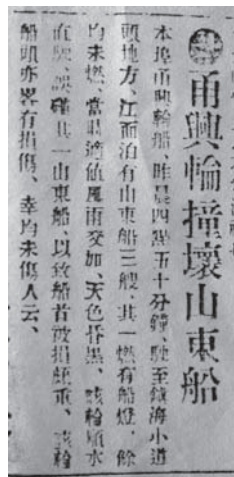 甬興輪撞壞山東船
本埠甬興輪船、昨晨四點五十分鐘、駛至鎮海小道
頭地方、江面泊有山東船三艘、其一燃有船燈、餘
均未燃、當時適值風雨交加、天色昏黑、該輪順水
直駛、誤碰其一山東船、以致船首被損頗重、該輪
船頭亦畧有損傷、幸均未傷人云、